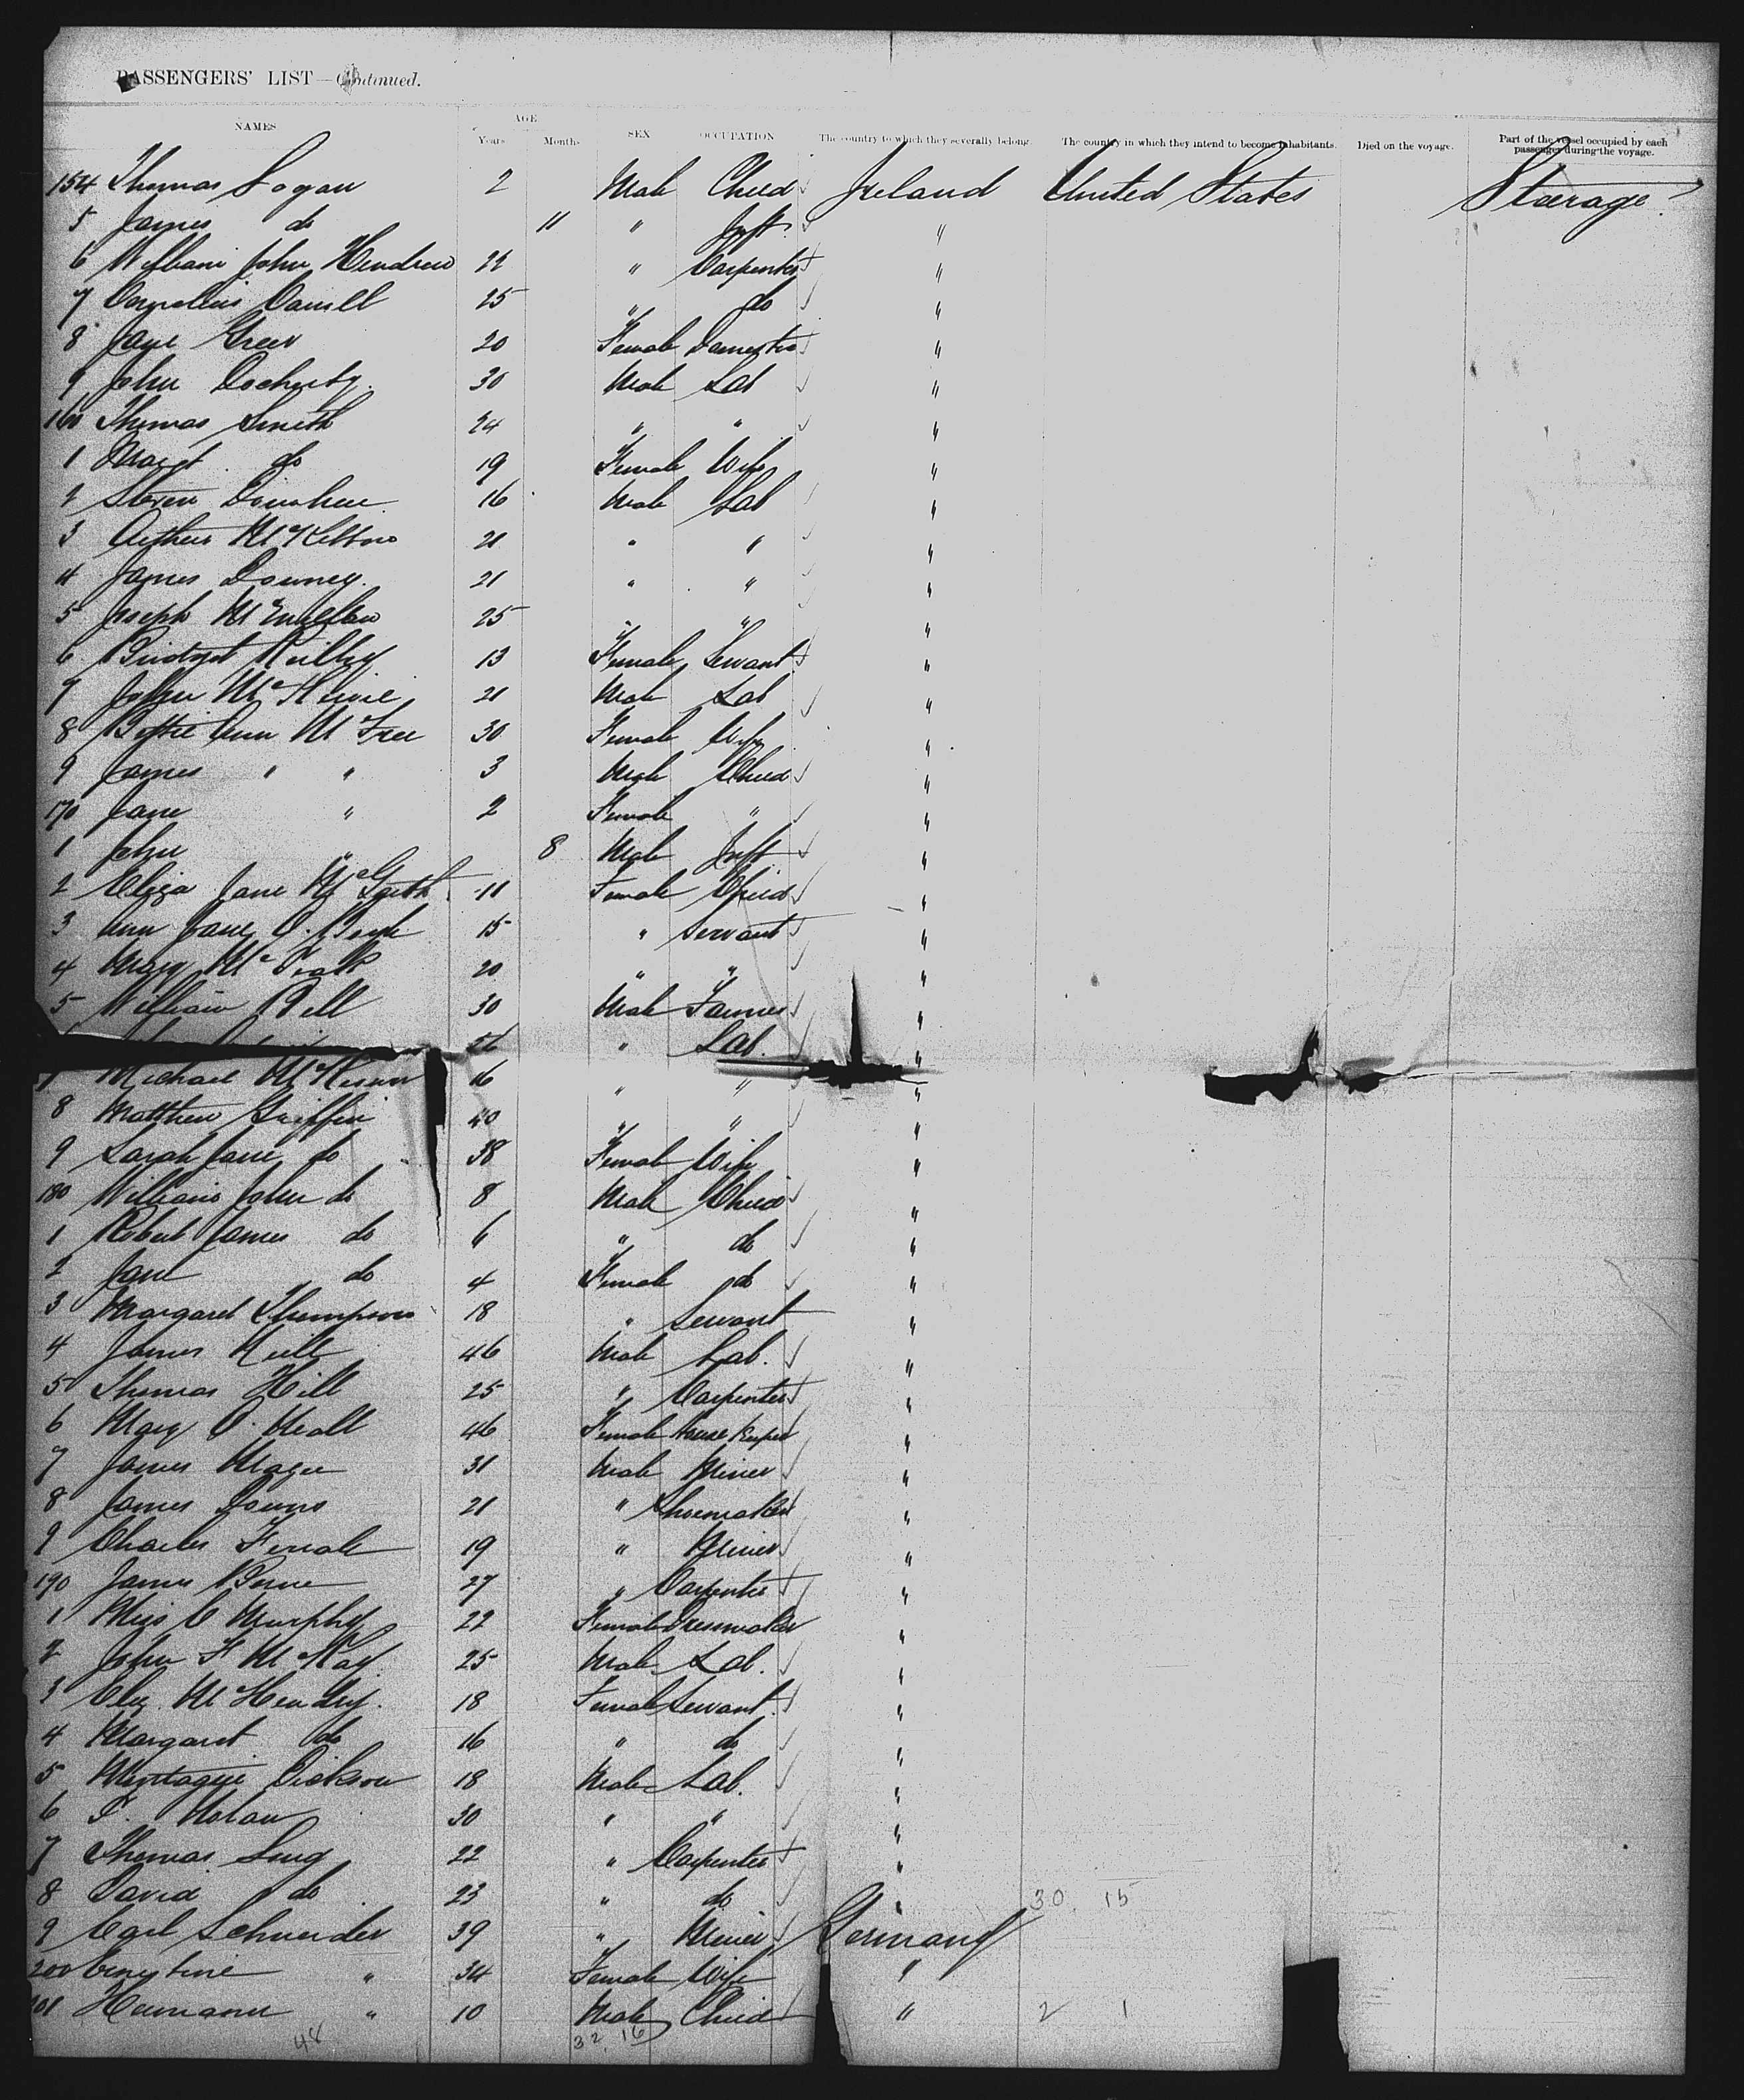 PASSENGERS' LIST—Continued.
NAMES AGE Years Months SEX OCCUPATION The country to which they severally belong. The country in which they intend to become inhabitants. Died on the voyage. Part of the vessel occupied by each passenger during the voyage.
154 Thomas Logan 2 Male Child Ireland United States Steerage
5 James do 11 " Inft "
6 William John Hendren 22 " Carpenter "
7 Cornelius 25 " do "
8 Jane Greer 20 Female Domestic "
9 John Docherty 30 Male Lab "
160 Thomas Smith 24 " " "
1 Margt do 19 Female Wife "
2 Steven Donahue 16 Male Lab "
3 Arthur 21 " " "
4 James Downey 21 " " "
5 Joseph 25 " " "
6 Bridget Reilly 13 Female Servant "
7 John 21 Male Lab "
8 Bettie Ann McFree 30 Female Wife "
9 James " " 3 Male Child "
170 Jane " 2 Female " "
1 John " 8 Male Inft "
2 Eliza Jane 11 Female Child "
3 Ann Jane O. 15 " Servant "
4 Mary 20 " " "
5 William Bell 30 Male Farmer "
" Lab. "
Michael 16 " " "
8 Matthew Griffin 40 " " "
9 Sarah Jane do 38 Female Wife "
180 William John do 8 Male Child "
1 Robert James do 6 " do "
2 Jane do 4 Female do "
3 Margaret Thompson 18 " Servant "
4 James 46 Male Lab. "
5 Thomas Hill 25 " Carpenter "
6 Mary O. Neall 46 Female House Keeper "
7 James Magee 31 Male Miner "
8 James Downs 21 " Shoemaker "
9 Charles 19 " Miner "
190 James 27 " Carpenter "
1 Miss C Murphy 22 Female Dressmaker "
2 John F McKay 25 Male Lab. "
3 Eliz. McHendry. 18 Female Servant "
4 Margaret do 16 " do "
5 Montague Dickson 18 Male Lab. "
6 P. Nolan 30 " " "
7 Thomas Long 22 " Carpenter "
8 David do 23 " do " 30. 15
9 Carl Schneider 39 " Miner Germany
200 Ernestine " 34 Female Wife "
201 Hermann " 10 Male Child " 2 1
48 32. 16